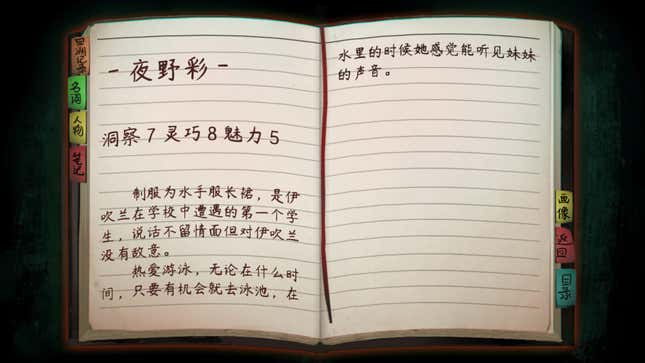 名词
人物
笔记
-夜野彩-
洞察7灵巧8魅力5
制服为水手服长裙，是伊
吹兰在学校中遭遇的第一个学
生，说话不留情面但对伊吹兰
没有敌意。
热爱游泳，无论在什么时
间，只要有机会就去泳池，在
水里的时候她感觉能听见妹妹
的声音。
画像
返回
目录